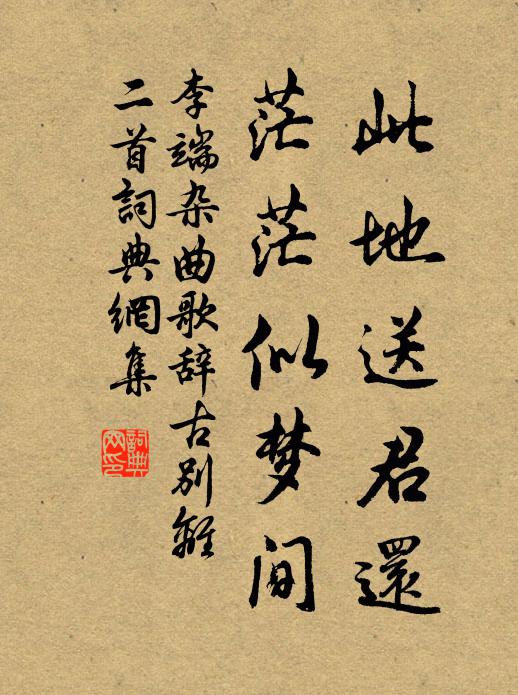 此地送君還
茫茫似梦间
李端杂曲歌辞古别離
二首詞典網集
詞典
网印